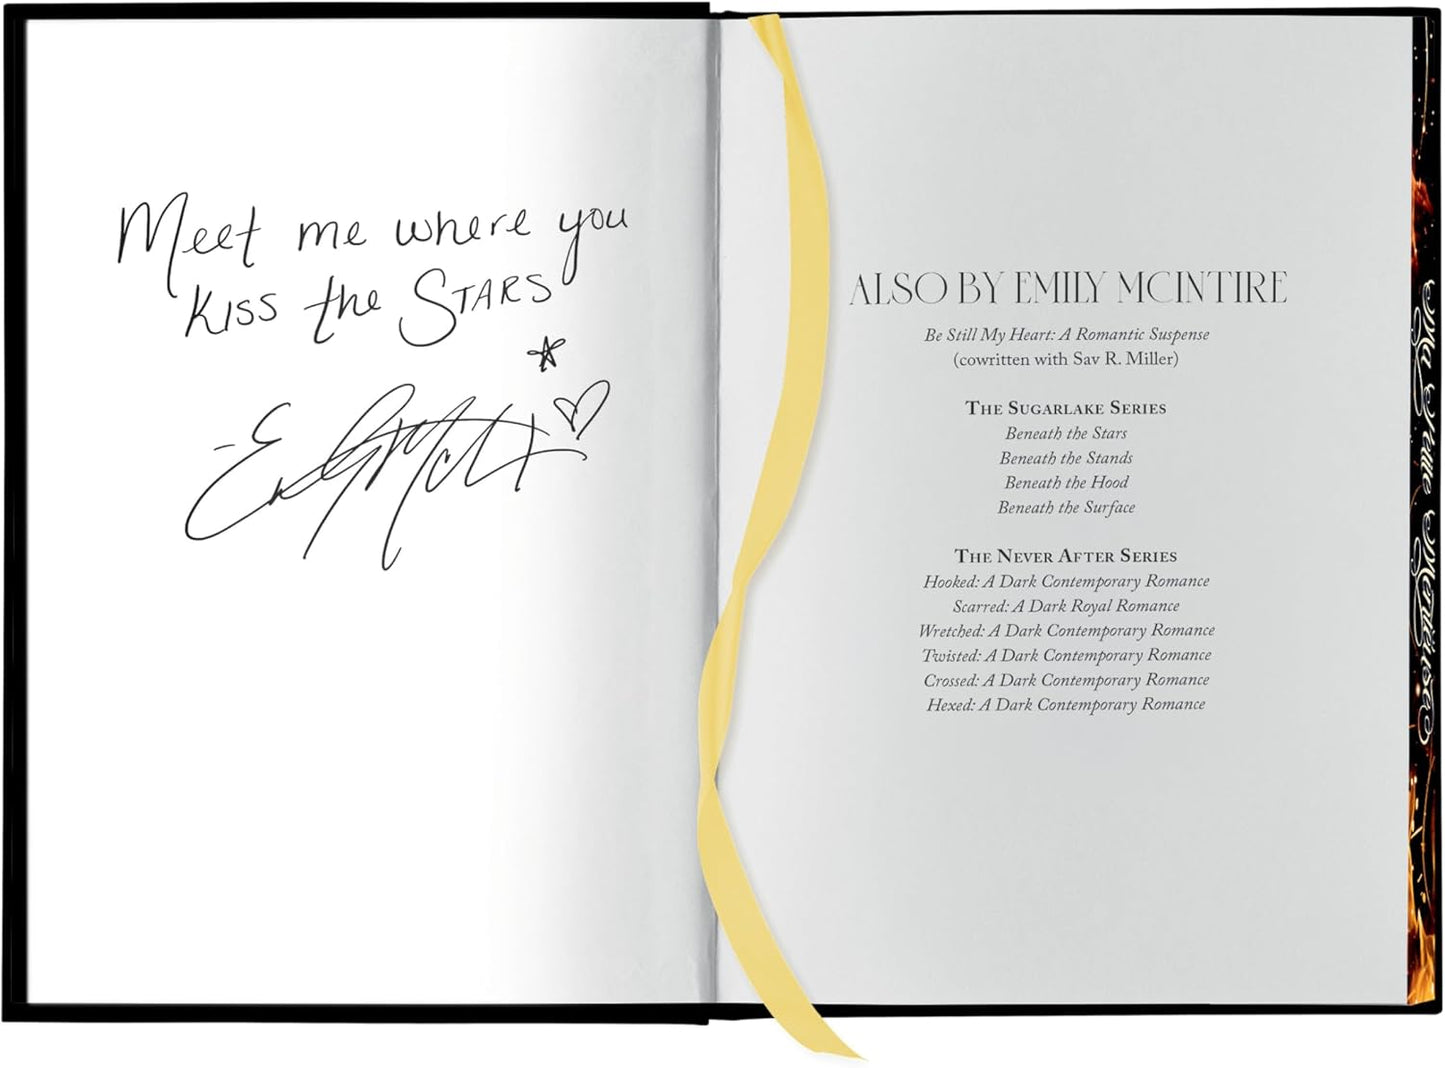 Meet me where you
Kiss the STARS
-Emily McInti
ALSO BY EMILY MCINTIRE
Be Still My Heart: A Romantic Suspense
(cowritten with Sav R. Miller)
THE SUGARLAKE SERIES
Beneath the Stars
Beneath the Stands
Beneath the Hood
Beneath the Surface
THE NEVER AFTER SERIES
Hooked: A Dark Contemporary Romance
Scarred: A Dark Royal Romance
Wretched: A Dark Contemporary Romance
Twisted: A Dark Contemporary Romance
Crossed: A Dark Contemporary Romance
Hexed: A Dark Contemporary Romance
Ma Petite Menteuse